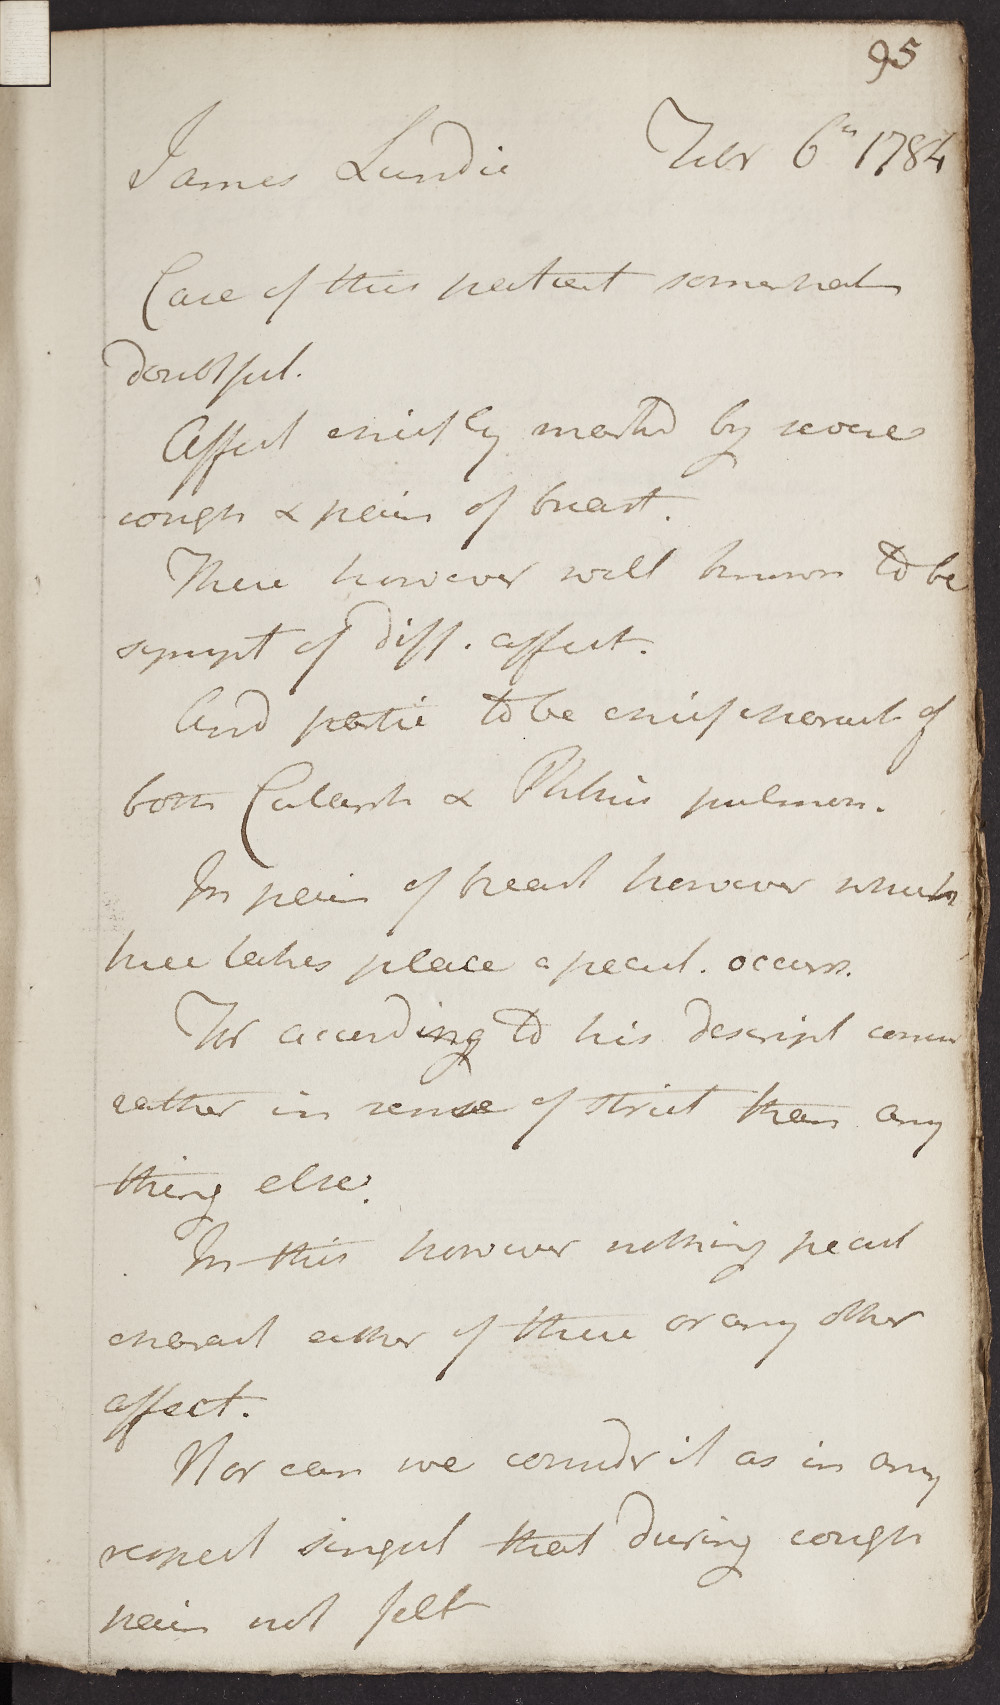 95
James Lundie Febr 6th 1784
Case of this patient somewhat
doubtful.
Affect chiefly marked by severe
cough & pain of breast.
These however well known to be
sympt of diff. affect.
And partic to be chief charact of
both Catarrh & Phthisis pulmon.
In pain of breast however which
here takes place a pecul. occurs.
For according to his descript consist
rather in sense of strict than any
thing else.
In this however nothing pecul
charact either of these or any other
affect.
Nor can we consider it as in any
respect singul that during cough
pain not felt